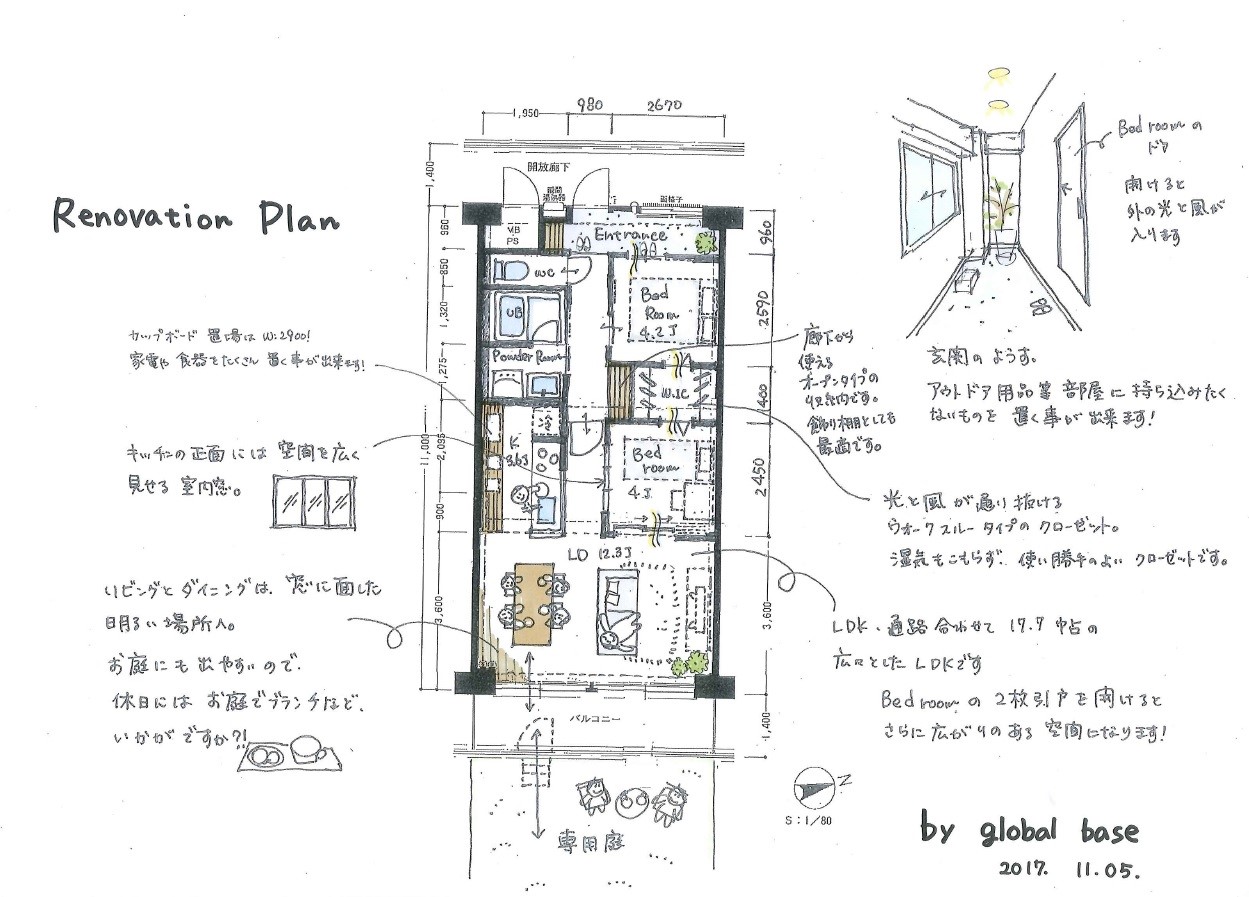 Renovation Plan
カップボード 置き場は W:2900!
家電や 食器をたくさん 置く事が出来ます!
キッチンの正面には 空間を広く
見せる 室内窓。
リビングと ダイニングは、窓に面した
明るい 場所へ。
お庭にも 出やすいので、
休日には お庭でブランチなど、
いかがですか?!
1,950
980
2670
1,400
開放廊下
面格子
960
MB
PS
Entrance
960
850
WC
Bed
Room
4.2J
2590
1,320
UB
1,275
Powder Room
W.IC
1400
11,000
2,095
冷
K
3.6J
Bed
room
4J
2450
900
LD 12.3J
3,600
3,600
バルコニー
1,400
専用庭
廊下から
使える
オープンタイプの
収納です。
飾り棚としても
最適です。
Bed roomの
ドア
開けると
外の光と風が
入ります
玄関のようす。
アウトドア用品等 部屋に持ち込みたく
ないものを 置く事が出来ます!
光と風が通り抜ける
ウォークスルータイプのクローゼット。
湿気もこもらず、使い勝手のよい クローゼットです。
LDK、通路合わせて 17.7帖の
広々とした LDKです
Bed roomの 2枚引戸を開けると
さらに広がりのある 空間になります!
N
S:1/80
by global base
2017. 11.05.